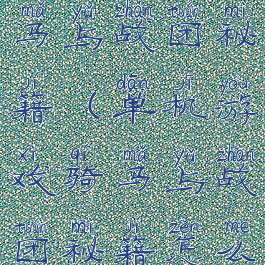 mǎ yǔ zhàn tuán mì
马与战团秘
jí dān jī yóu
籍（单机游
xì qí mǎ yǔ zhàn
戏骑马与战
tuán mì jí zěn me
团秘籍怎么